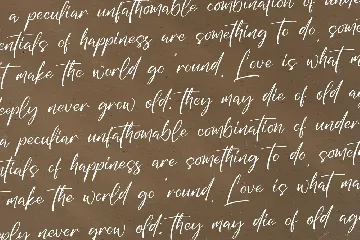 a peculiar unfathomable combination of under
entials of happiness are something to do, some
t make the world go 'round. Love is what m
eeply never grow old; they may die of old a
a peculiar unfathomable combination of under
ntials of happiness are something to do, some
t make the world go 'round. Love is what ma
eeply never grow old; they may die of old ag